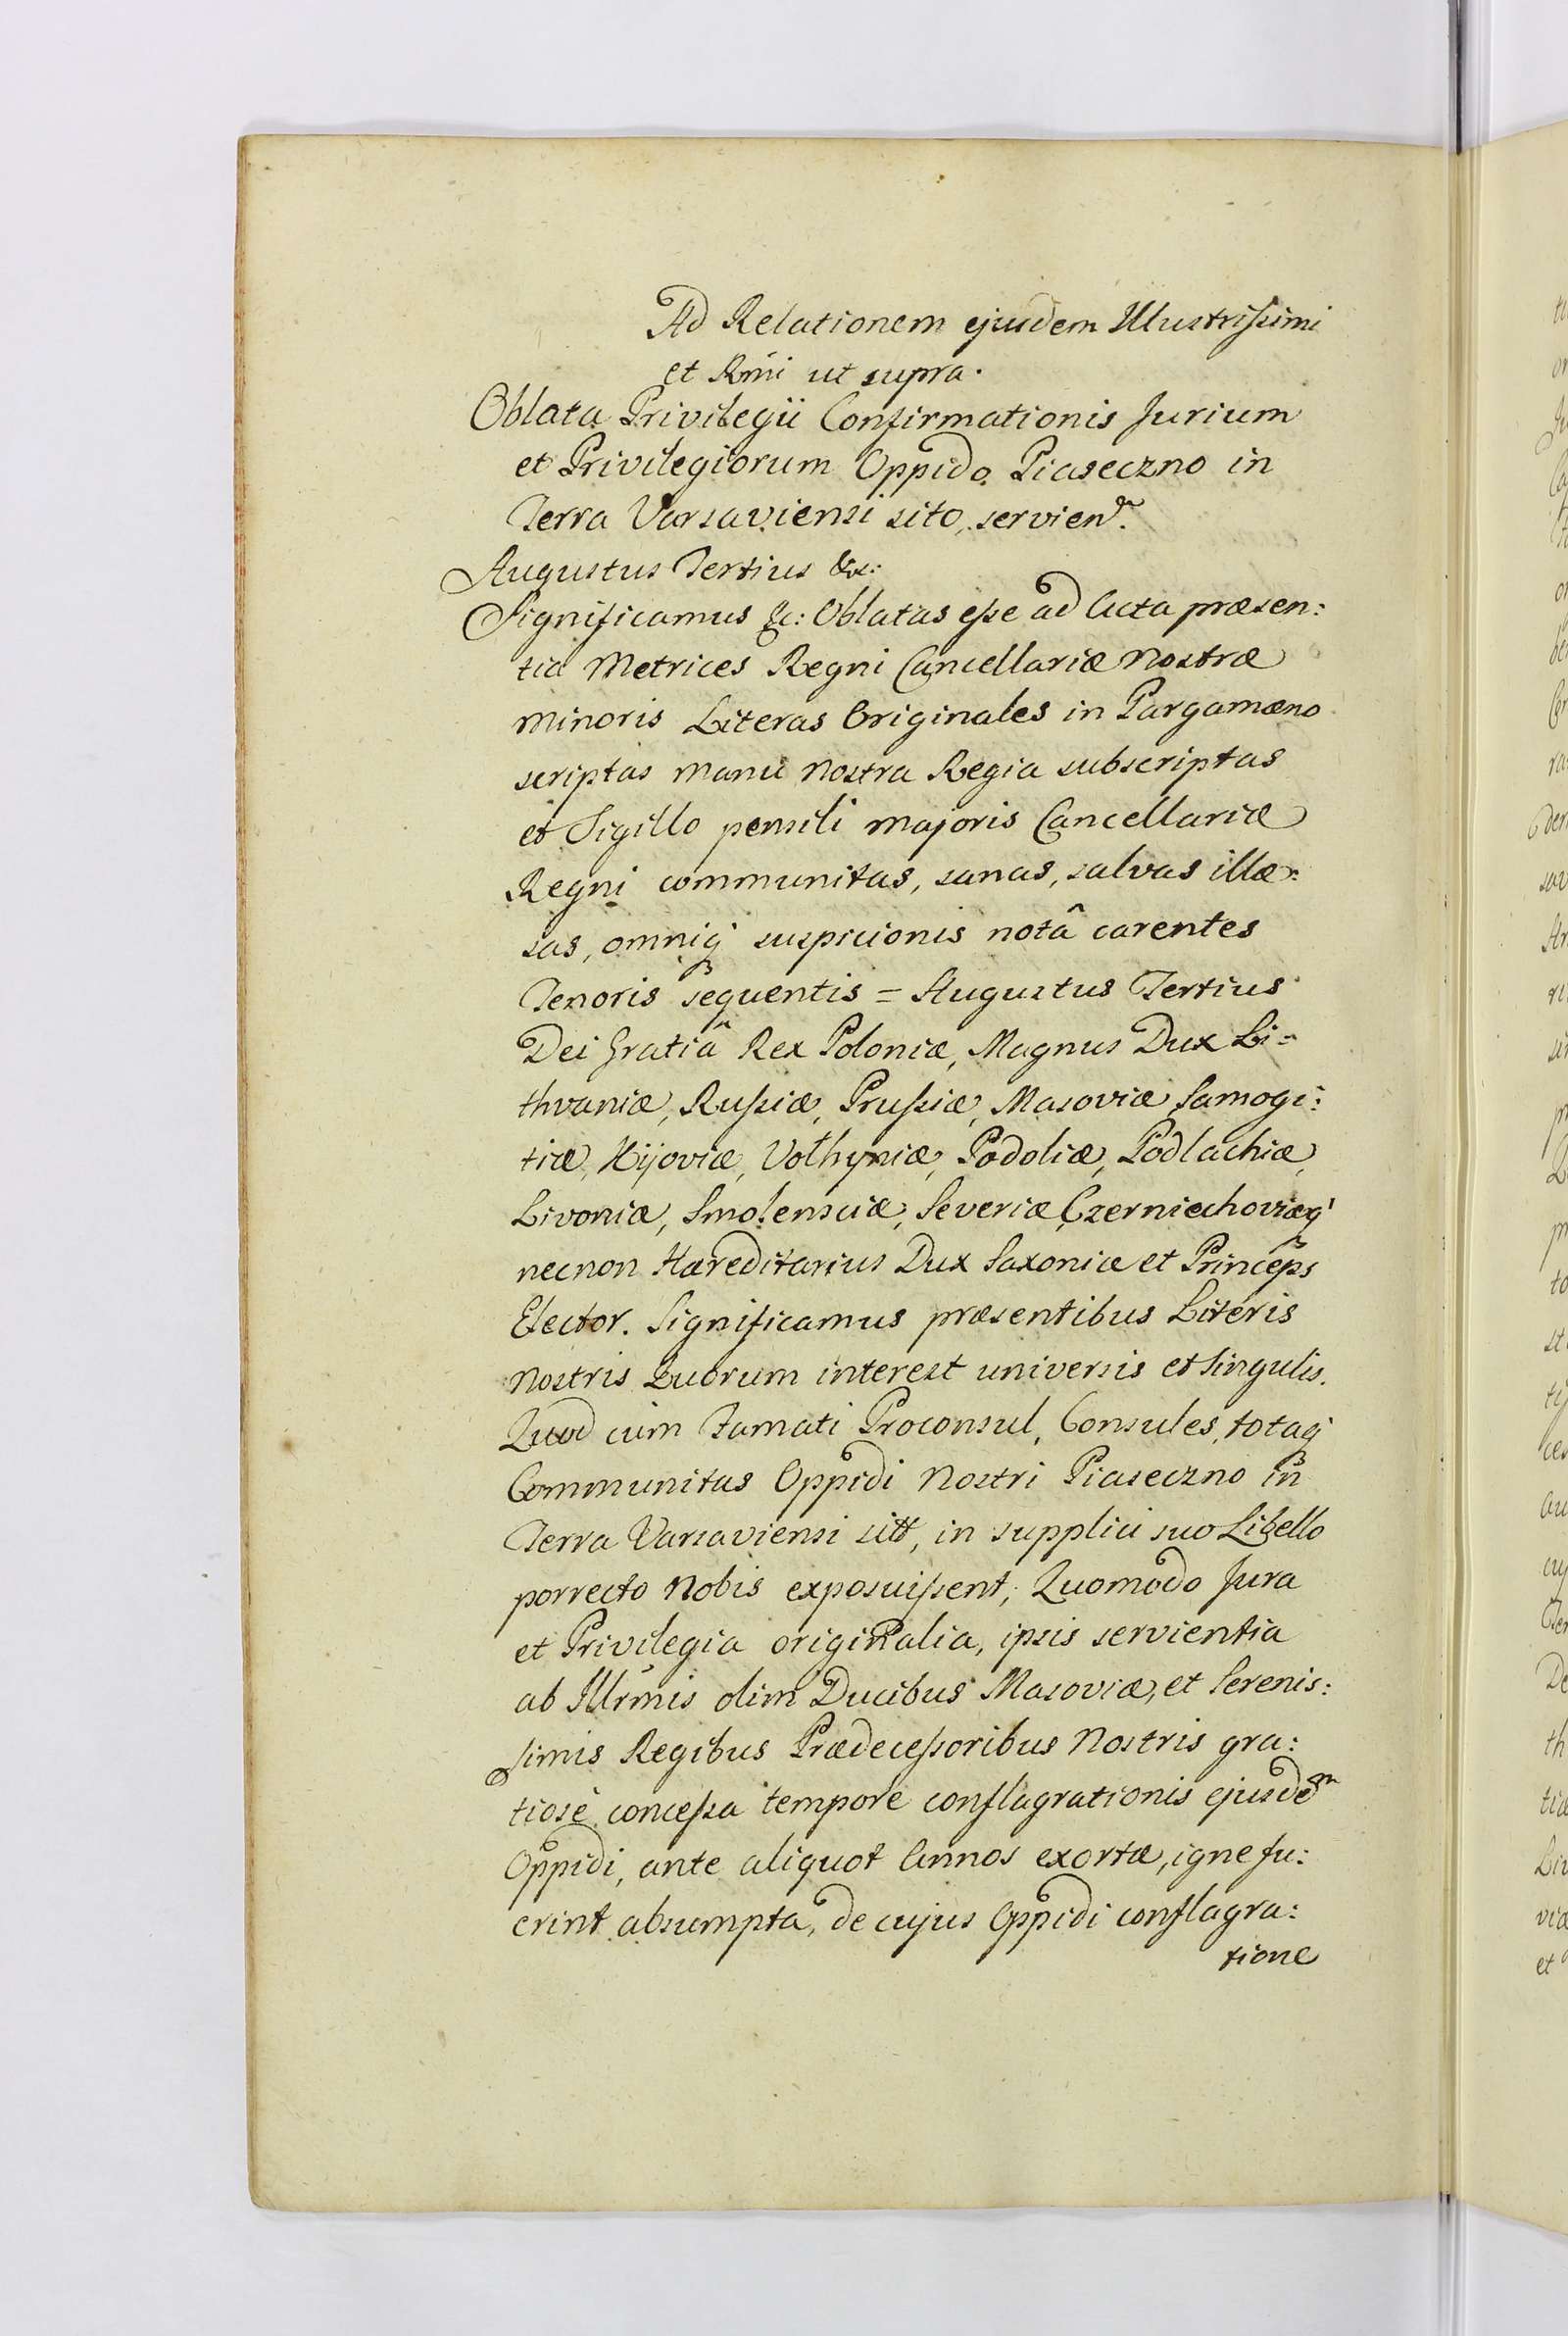 Ad Relationem ejusdem Illustrissimi
et Rmi ut supra.
Oblata Privilegii Confirmationis Jurium
et Privilegiorum Oppido Piaseczno in
Terra Varsaviensi sito, servien.
Augustus Tertius &c:
Significamus &c: Oblatas esse ad Acta præsen:
tia Metrices Regni Cancellariæ Nostræ
Minoris Literas Originales in Pargamæno
scriptas manu Nostra Regia subscriptas
et Sigillo pensili majoris Cancellariæ
Regni communitas, sanas, salvas illæ:
sas, omniq suspicionis notâ carentes
Tenoris sequentis = Augustus Tertius
Dei Gratiâ Rex Poloniæ, Magnus Dux Li=
thvaniæ, Russiæ, Prussiæ, Masoviæ Samogi:
tiæ, Kijoviæ, Volhyniæ, Podoliæ, Podlachiæ,
Livoniæ, Smolensciæ, Severiæ Czerniechoviæq
necnon Hæreditarius Dux Saxoniæ et Princeps
Elector. Significamus præsentibus Literis
Nostris Quorum interest universis et singulis.
Quod cum Famati Proconsul, Consules, totaq
Communitas Oppidi Nostri Piaseczno in
Terra Varsaviensi sitt, in supplici suo Libello
porrecto Nobis exposuissent, Quomodo Jura
et Privilegia originalia, ipsis servientia
ab Illrmis olim Ducibus Masoviæ, et Serenis:
simis Regibus Prædecessoribus Nostris gra:
tiosè concessa tempore conflagrationis ejusdem
Oppidi, ante aliquot Annos exortæ, igne fu:
erint absumpta, de cujus Oppidi conflagra:
tione